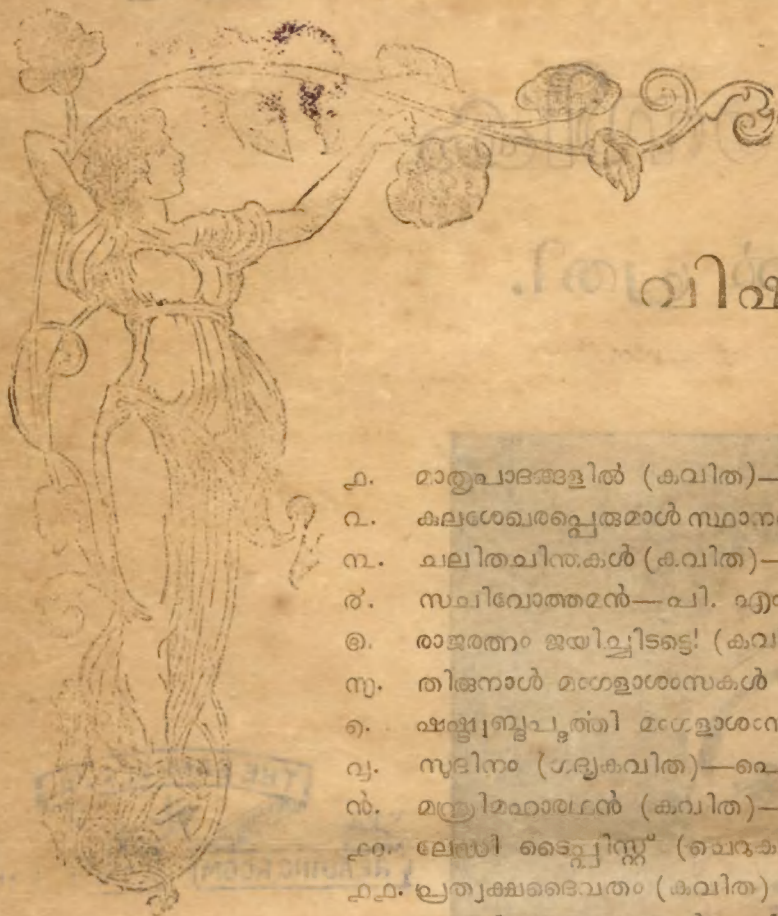 വിഷ
൧. മാതൃപാദങ്ങളിൽ (കവിത)—
൨. കുലശേഖരപ്പെരുമാൾ സ്ഥാന
൩. ചലിതചിന്തകൾ (കവിത)—
൪. സചിവോത്തമൻ—പി. എം
൫. രാജരത്നം ജയിച്ചിടട്ടെ! (കവി
൬. തിരുനാൾ മംഗളാശംസകൾ
൭. ഷഷ്ട്യബ്ദപൂർത്തി മംഗളാശംസ
൮. സുദിനം (ഗദ്യകവിത)—പെ
൯. മന്ത്രിമഹാരഥൻ (കവിത)—
൧൦. ലേഡി ടൈപ്പിസ്റ്റ് (ചെറുക
൧൧. പ്രത്യക്ഷദൈവതം (കവിത)